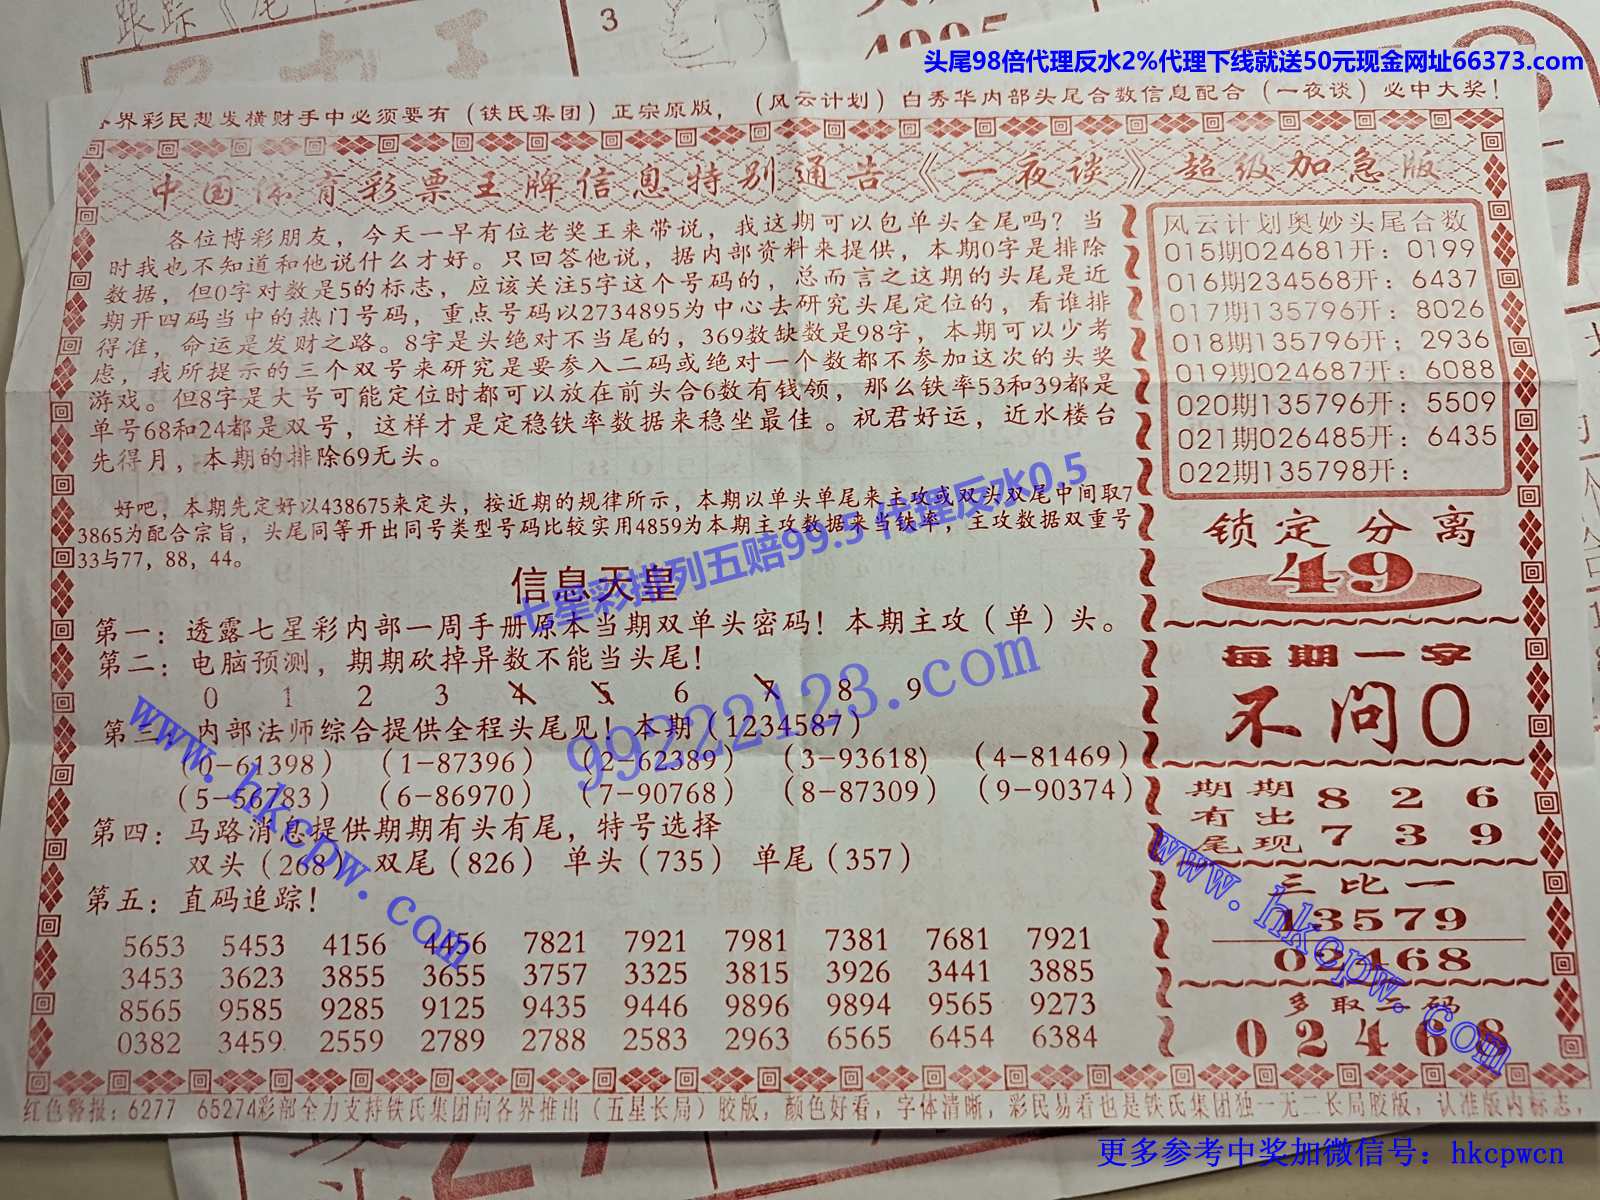 跟踪
3
头尾98倍代理反水2%代理下线就送50元现金网址66373.com
各界彩民想发横财手中必须要有（铁氏集团）正宗原版，（风云计划）白秀华内部头尾合数信息配合（一夜谈）必中大奖！
中国体育彩票王牌信息特别通告《一夜谈》超级加急版
各位博彩朋友，今天一早有位老奖王来带说，我这期可以包单头全尾吗？当
时我也不知道和他说什么才好。只回答他说，据内部资料来提供，本期0字是排除
数据，但0字对数是5的标志，应该关注5字这个号码的，总而言之这期的头尾是近
期开四码当中的热门号码，重点号码以2734895为中心去研究头尾定位的，看谁排
得准，命运是发财之路。8字是头绝对不当尾的，369数缺数是98字，本期可以少考
虑，我所提示的三个双号来研究是要参入二码或绝对一个数都不参加这次的头奖
游戏。但8字是大号可能定位时都可以放在前头合6数有钱领，那么铁率53和39都是
单号68和24都是双号，这样才是定稳铁率数据来稳坐最佳。祝君好运，近水楼台
先得月，本期的排除69无头。
好吧，本期先定好以438675来定头，按近期的规律所示，本期以单头单尾来主攻或双头双尾中间取7
3865为配合宗旨，头尾同等开出同号类型号码比较实用4859为本期主攻数据来当铁率，主攻数据双重号
33与77，88，44。
七星彩排列五赔99.5 代理反水0.5
信息天皇
第一：透露七星彩内部一周手册原本当期双单头密码！本期主攻（单）头。
第二：电脑预测，期期砍掉异数不能当头尾！
0 1 2 3 4 5 6 7 8 9
第三：内部法师综合提供全程头尾见！本期（1234587）
（0-61398）（1-87396）（2-62389）（3-93618）（4-81469）
（5-56783）（6-86970）（7-90768）（8-87309）（9-90374）
99222123.com
www.hkcpw.com
第四：马路消息提供期期有头有尾，特号选择
双头（268） 双尾（826） 单头（735） 单尾（357）
第五：直码追踪！
5653 5453 4156 4456 7821 7921 7981 7381 7681 7921
3453 3623 3855 3655 3757 3325 3815 3926 3441 3885
8565 9585 9285 9125 9435 9446 9896 9894 9565 9273
0382 3459 2559 2789 2788 2583 2963 6565 6454 6384
风云计划奥妙头尾合数
015期024681开：0199
016期234568开：6437
017期135796开：8026
018期135796开：2936
019期024687开：6088
020期135796开：5509
021期026485开：6435
022期135798开：
锁定分离
49
每期一字
不问0
期期 8 2 6
有出
尾现 7 3 9
三比一
13579
02468
多取二码
02468
www.hkcpw.com
红色警报：6277 65274彩部全力支持铁氏集团向各界推出（五星长局）胶版，颜色好看，字体清晰，彩民易看也是铁氏集团独一无二长局胶版，认准版内标志，
更多参考中奖加微信号：hkcpwcn